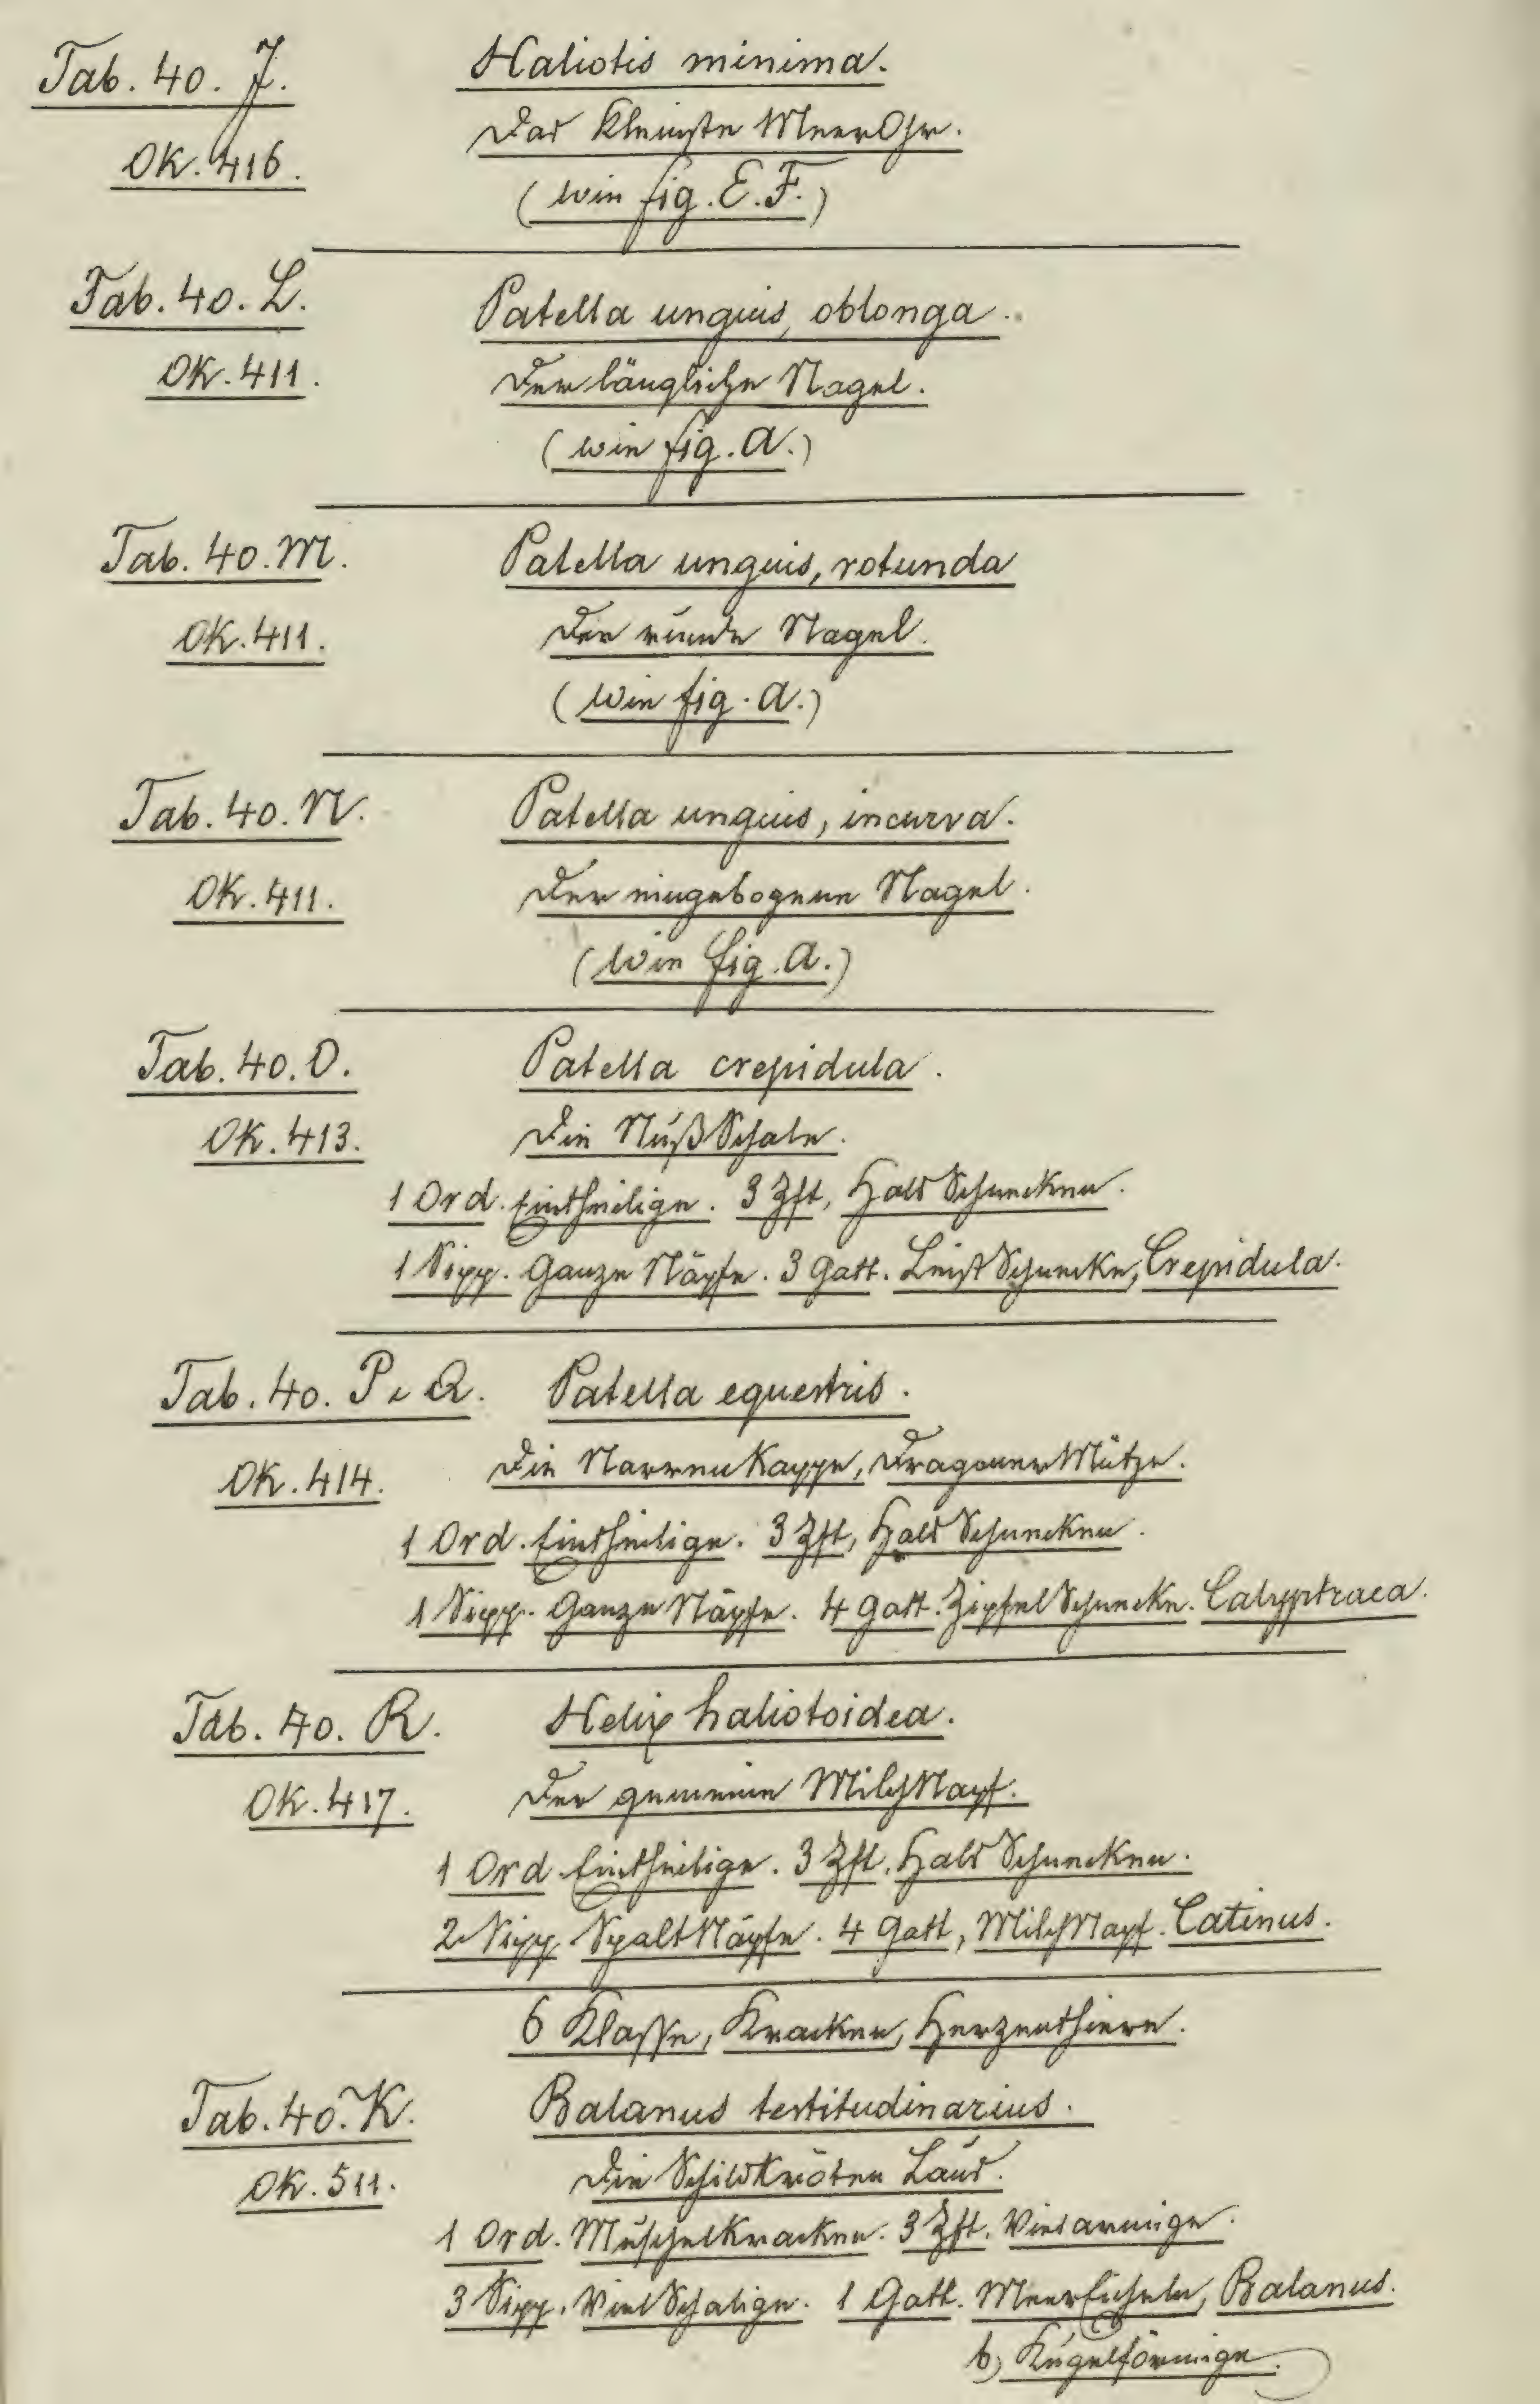 Tab. 40. J. Haliotis minima.
OK. 416. Das kleinste MeerOhr.
(wie fig. E. F.)
Tab. 40. L. Patella unguis, oblonga.
OK. 411. Der längliche Nagel.
(wie fig. A.)
Tab. 40. M. Patella unguis, rotunda
OK. 411. Der runde Nagel.
(wie fig. A.)
Tab. 40. N. Patella unguis, incurva.
OK. 411. Der eingebogene Nagel.
(wie fig. A.)
Tab. 40. O. Patella crepidula.
OK. 413. Die NußSchale.
1 Ord. Eintheilige. 3 Zft, HalbSchnecken.
1 Sipp. Ganze Näpfe. 3 Gatt. LeistSchnecke, Crepidula.
Tab. 40. P. Q. Patella equestris.
OK. 414. Die NarrenKappe, DragonerMütze.
1 Ord. Eintheilige. 3 Zft, HalbSchnecken.
1 Sipp. Ganze Näpfe. 4 Gatt. ZipfelSchnecke. Calyptraea.
Tab. 40. R. Helix haliotoidea.
OK. 417. Der gemeine MilchNapf.
1 Ord. Eintheilige. 3 Zft. HalbSchnecken.
2 Sipp. SpaltNäpfe. 4 Gatt, MilchNapf. Catinus.
6 Klasse, Kracken, Herzenthiere.
Tab. 40. K. Balanus testitudinarius.
OK. 511. Die Schildkröten Laus.
1 Ord. MuschelKracken. 3 Zft. Vielarmige.
3 Sipp. VielSchalige. 1 Gatt. MeerEicheln, Balanus.
b) Kugelförmige.